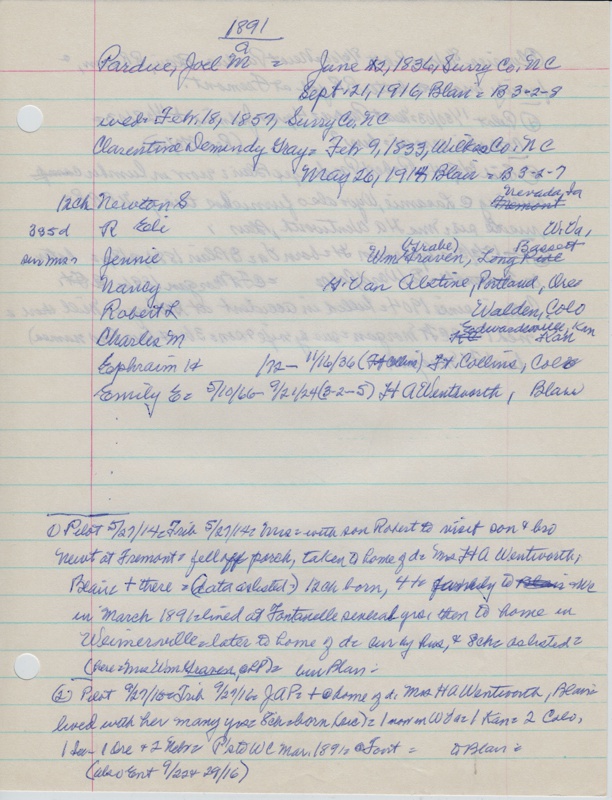 1891
a
Pardue, Joel M = June 22, 1836, Surry Co, NC
Sept 21, 1916, Blair = B 3-2-8
wed = Feb. 18, 1857, Surry Co, NC
Clarentine Demindy Gray = Feb 9, 1833, Wilkes Co, NC
May 26, 1914 Blair = B 3-2-7
12ch Newton S Nevada, Ia Fremont
3 as d R Eli W. Va,
sur mas Jennie Wm (Grabe) Graven, Long Pine Bassett
Nancy H Van Alstine, Portland, Ores
Robert L Walden, Colo
Charles M Edwardsville, Kan Kan
Ephraim H /72 – 11/16/36 (Ft Collins) Ft. Collins, Colo
Emily E = 5/10/66 – 9/21/24 (3-2-5) H A Wentworth, Blair
1) Pilot 5/27/14 = Trib 5/27/14 = Mrs = with son Robert to visit son & bro
Newt at Fremont = fell off porch, taken to home of d = Mrs H A Wentworth,
Blair + there = (data as listed =) 12ch born, 4 to family to Blair = WC
in March 1891 = lived at Fontanelle several yrs, then to home in
Weimersville = later to home of d = sur by hus, & 8ch = as listed =
(here = Mrs Wm Graven, LP) = bur Blair =
(2) Pilot 9/27/16 = Trib 9/27/16 = JAP = + @ home of d, Mrs H A Wentworth, Blair
lived with her many yrs = 8ch = born (sic) = 1 now in W Va = 1 Kan = 2 Colo,
1 Ore + 2 Nebr = P's to WC Mar, 1891 = @ Font = to Blair =
(also Ent 9/22 & 29/16)